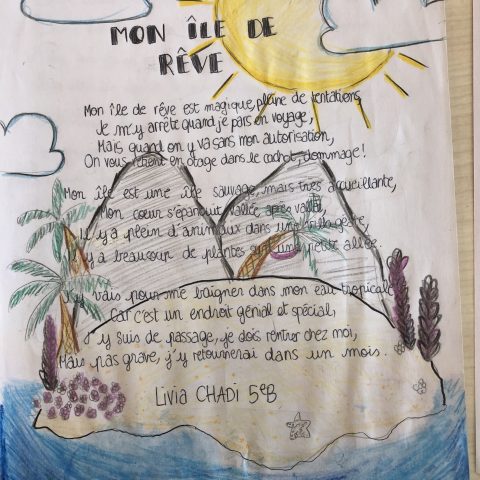 MON ÎLE DE
RÊVE
Mon île de rêve est magique, pleine de tentations,
Je m'y arrête quand je pars en voyage,
Mais quand on y va sans mon autorisation,
On vous retient en otage dans le cachot, dommage!
Mon île est une île sauvage, mais très accueillante,
Mon cœur s'épanouit vallée après vallée,
Il y a plein d'animaux dans une
Il y a beaucoup de plantes sur une petite allée.
J'y vais pour me baigner dans mon eau tropicale
Car c'est un endroit génial et spécial,
J'y suis de passage, je dois rentrer chez moi,
Mais pas grave, j'y retournerai dans un mois.
Livia CHADI 5eB